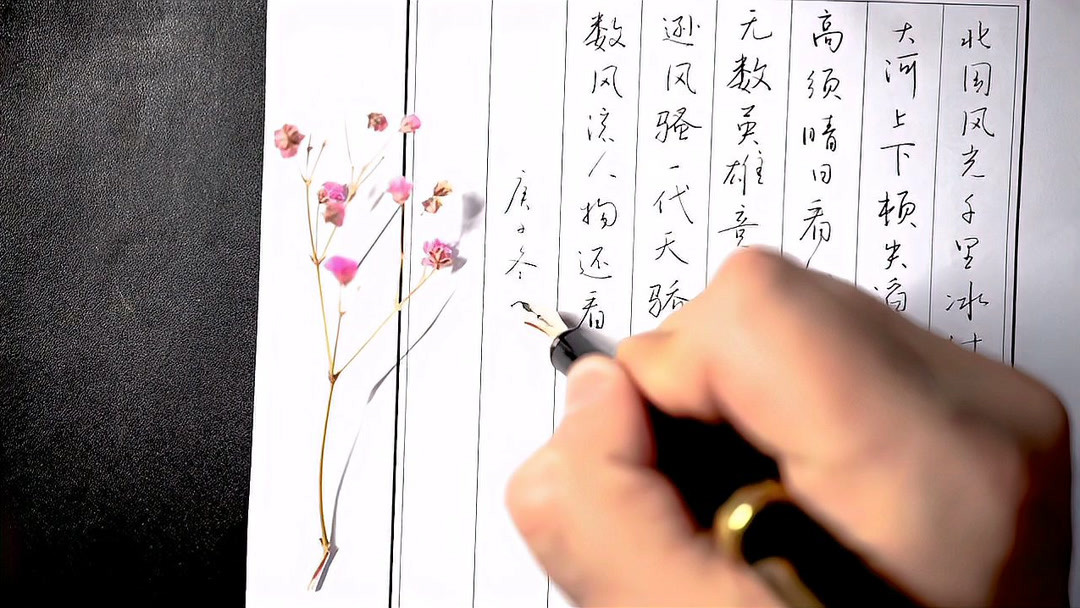 北国风光千里冰
大河上下顿失滔
高须晴日看
无数英雄竞
逊风骚一代天骄
数风流人物还看
庚子冬